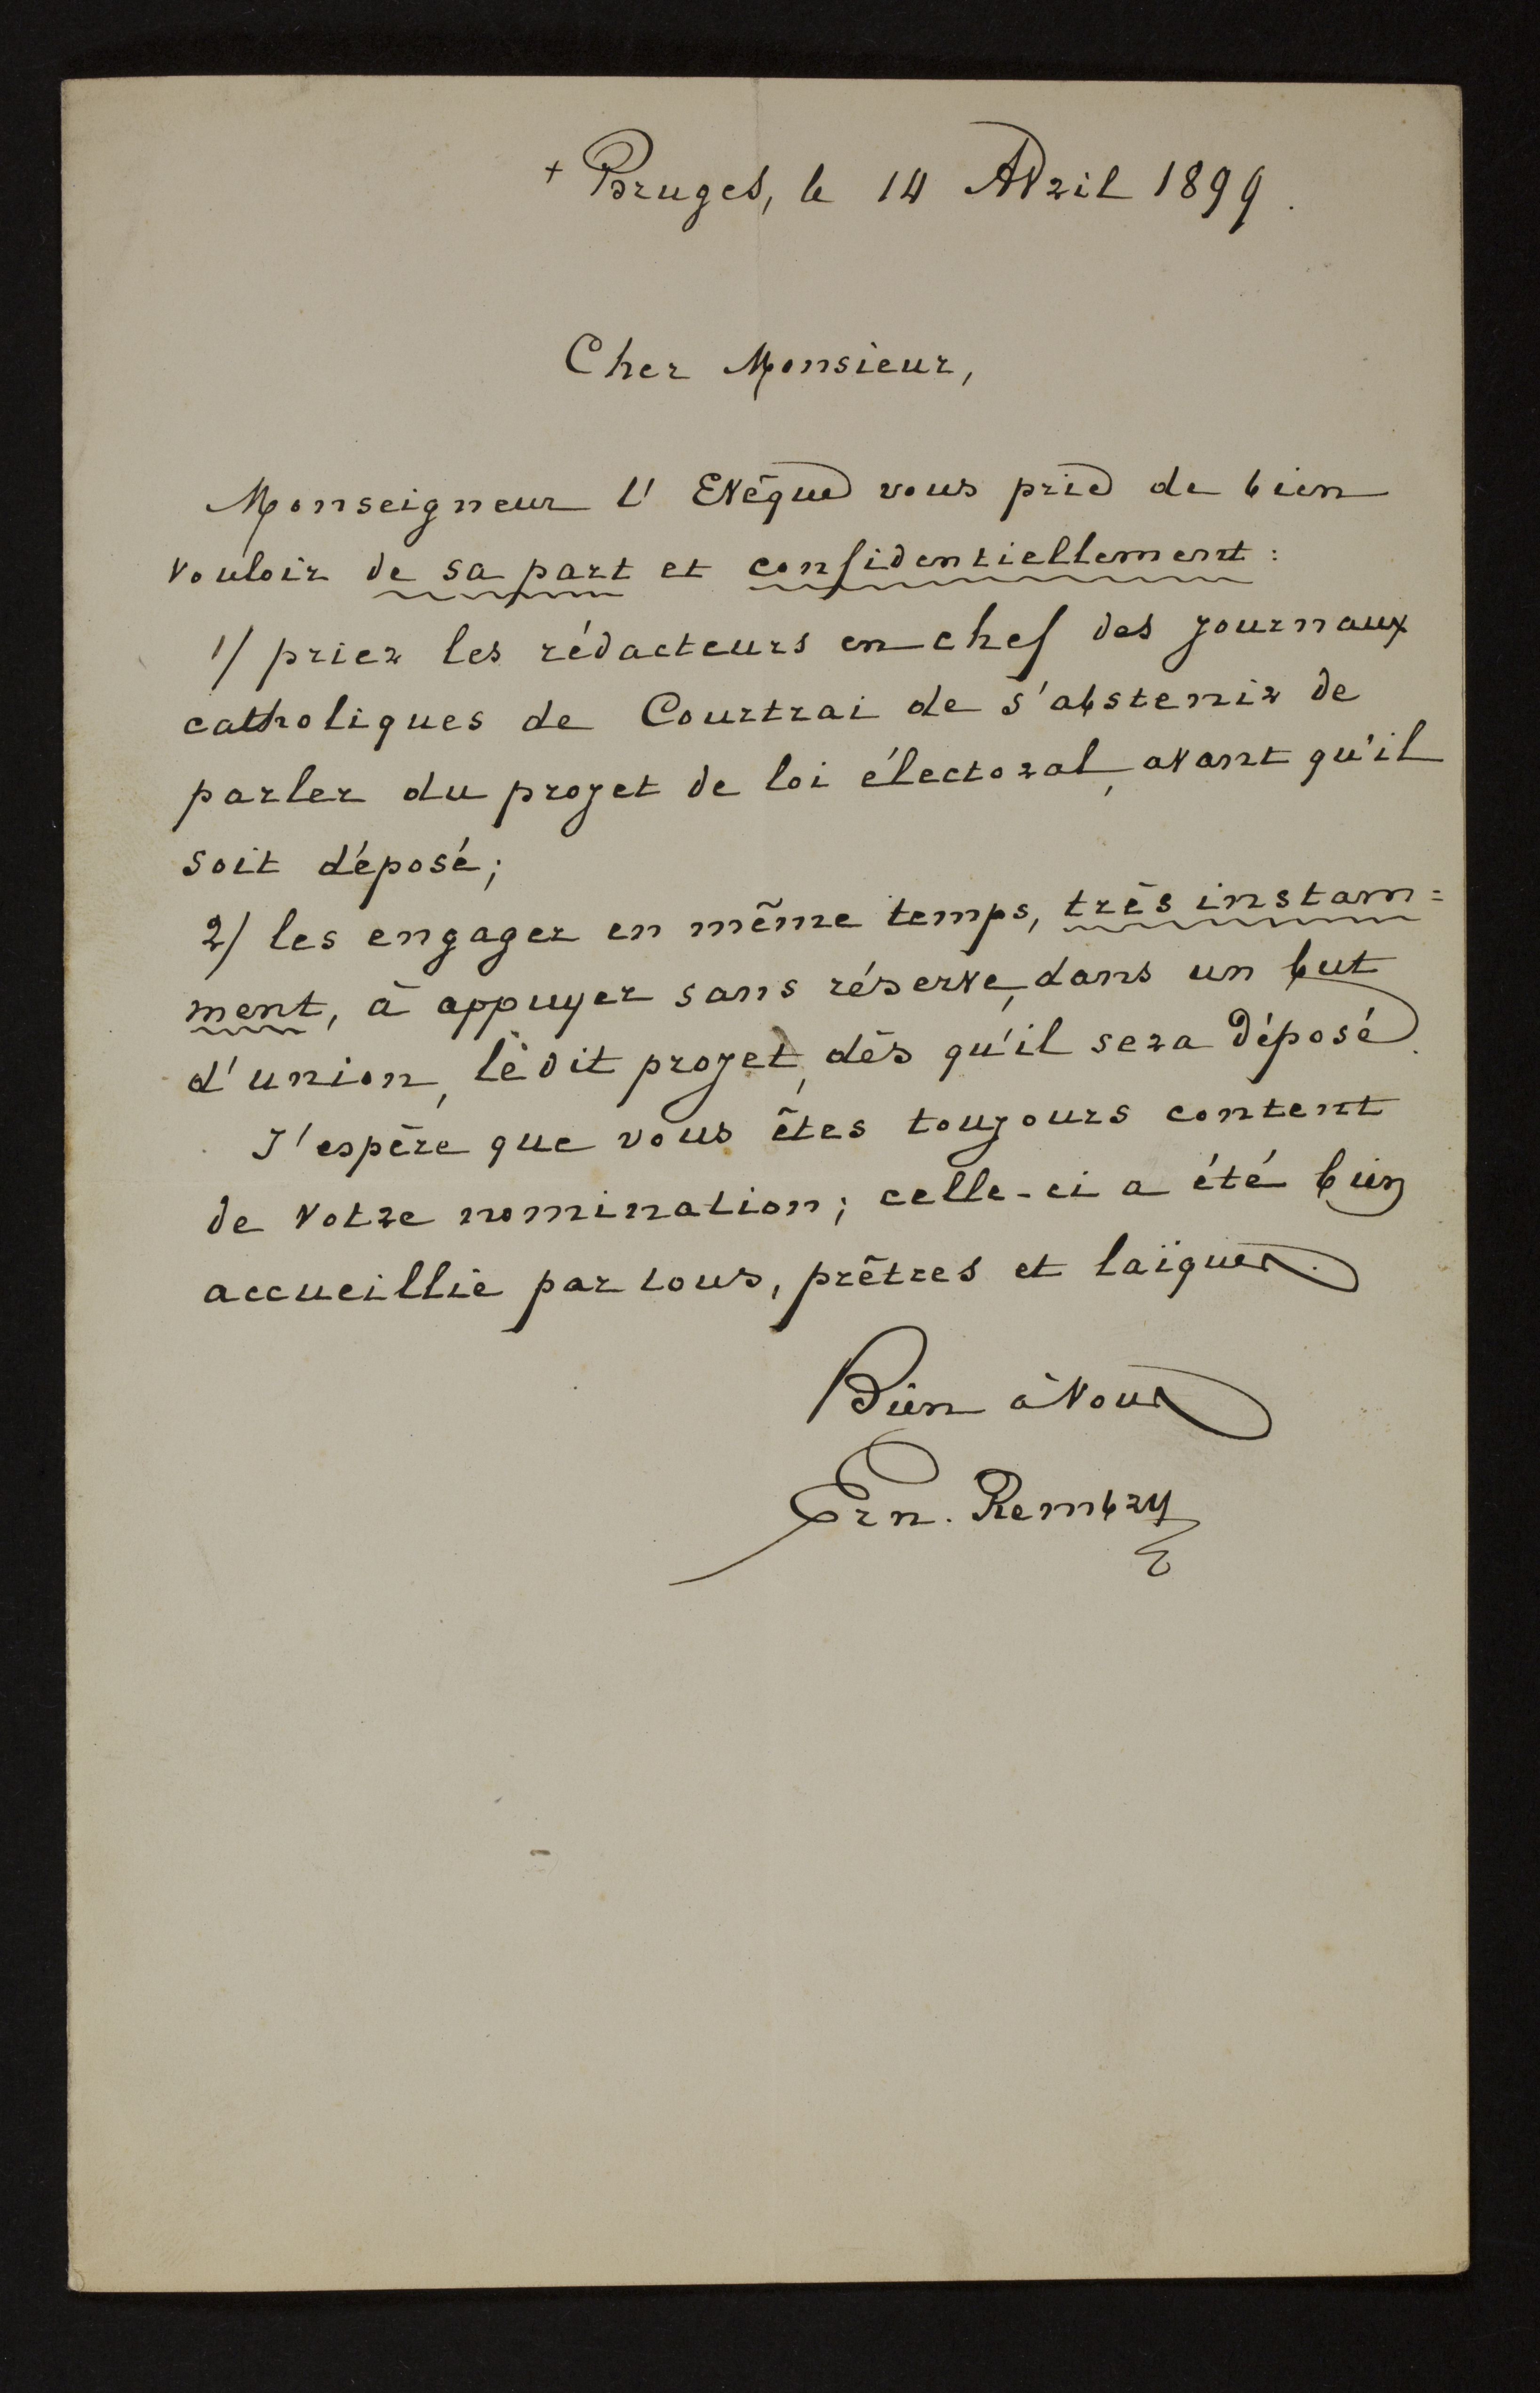 + Bruges, le 14 Avril 1899.
Cher Monsieur,
Monseigneur l'Evêque vous prie de bien
vouloir de sa part et confidentiellement :
1/ prier les rédacteurs en chef des journaux
catholiques de Courtrai de s'abstenir de
parler du projet de loi électoral, avant qu'il
soit déposé;
2/ les engager en même temps, très instam=
ment, à appuyer sans réserve, dans un but
d'union, lèdit projet, dès qu'il sera déposé.
J'espère que vous êtes toujours content
de votre nomination; celle-ci a été bien
accueillie par tous, prêtres et laïques.
Bien à Vous
Ern. Rembry